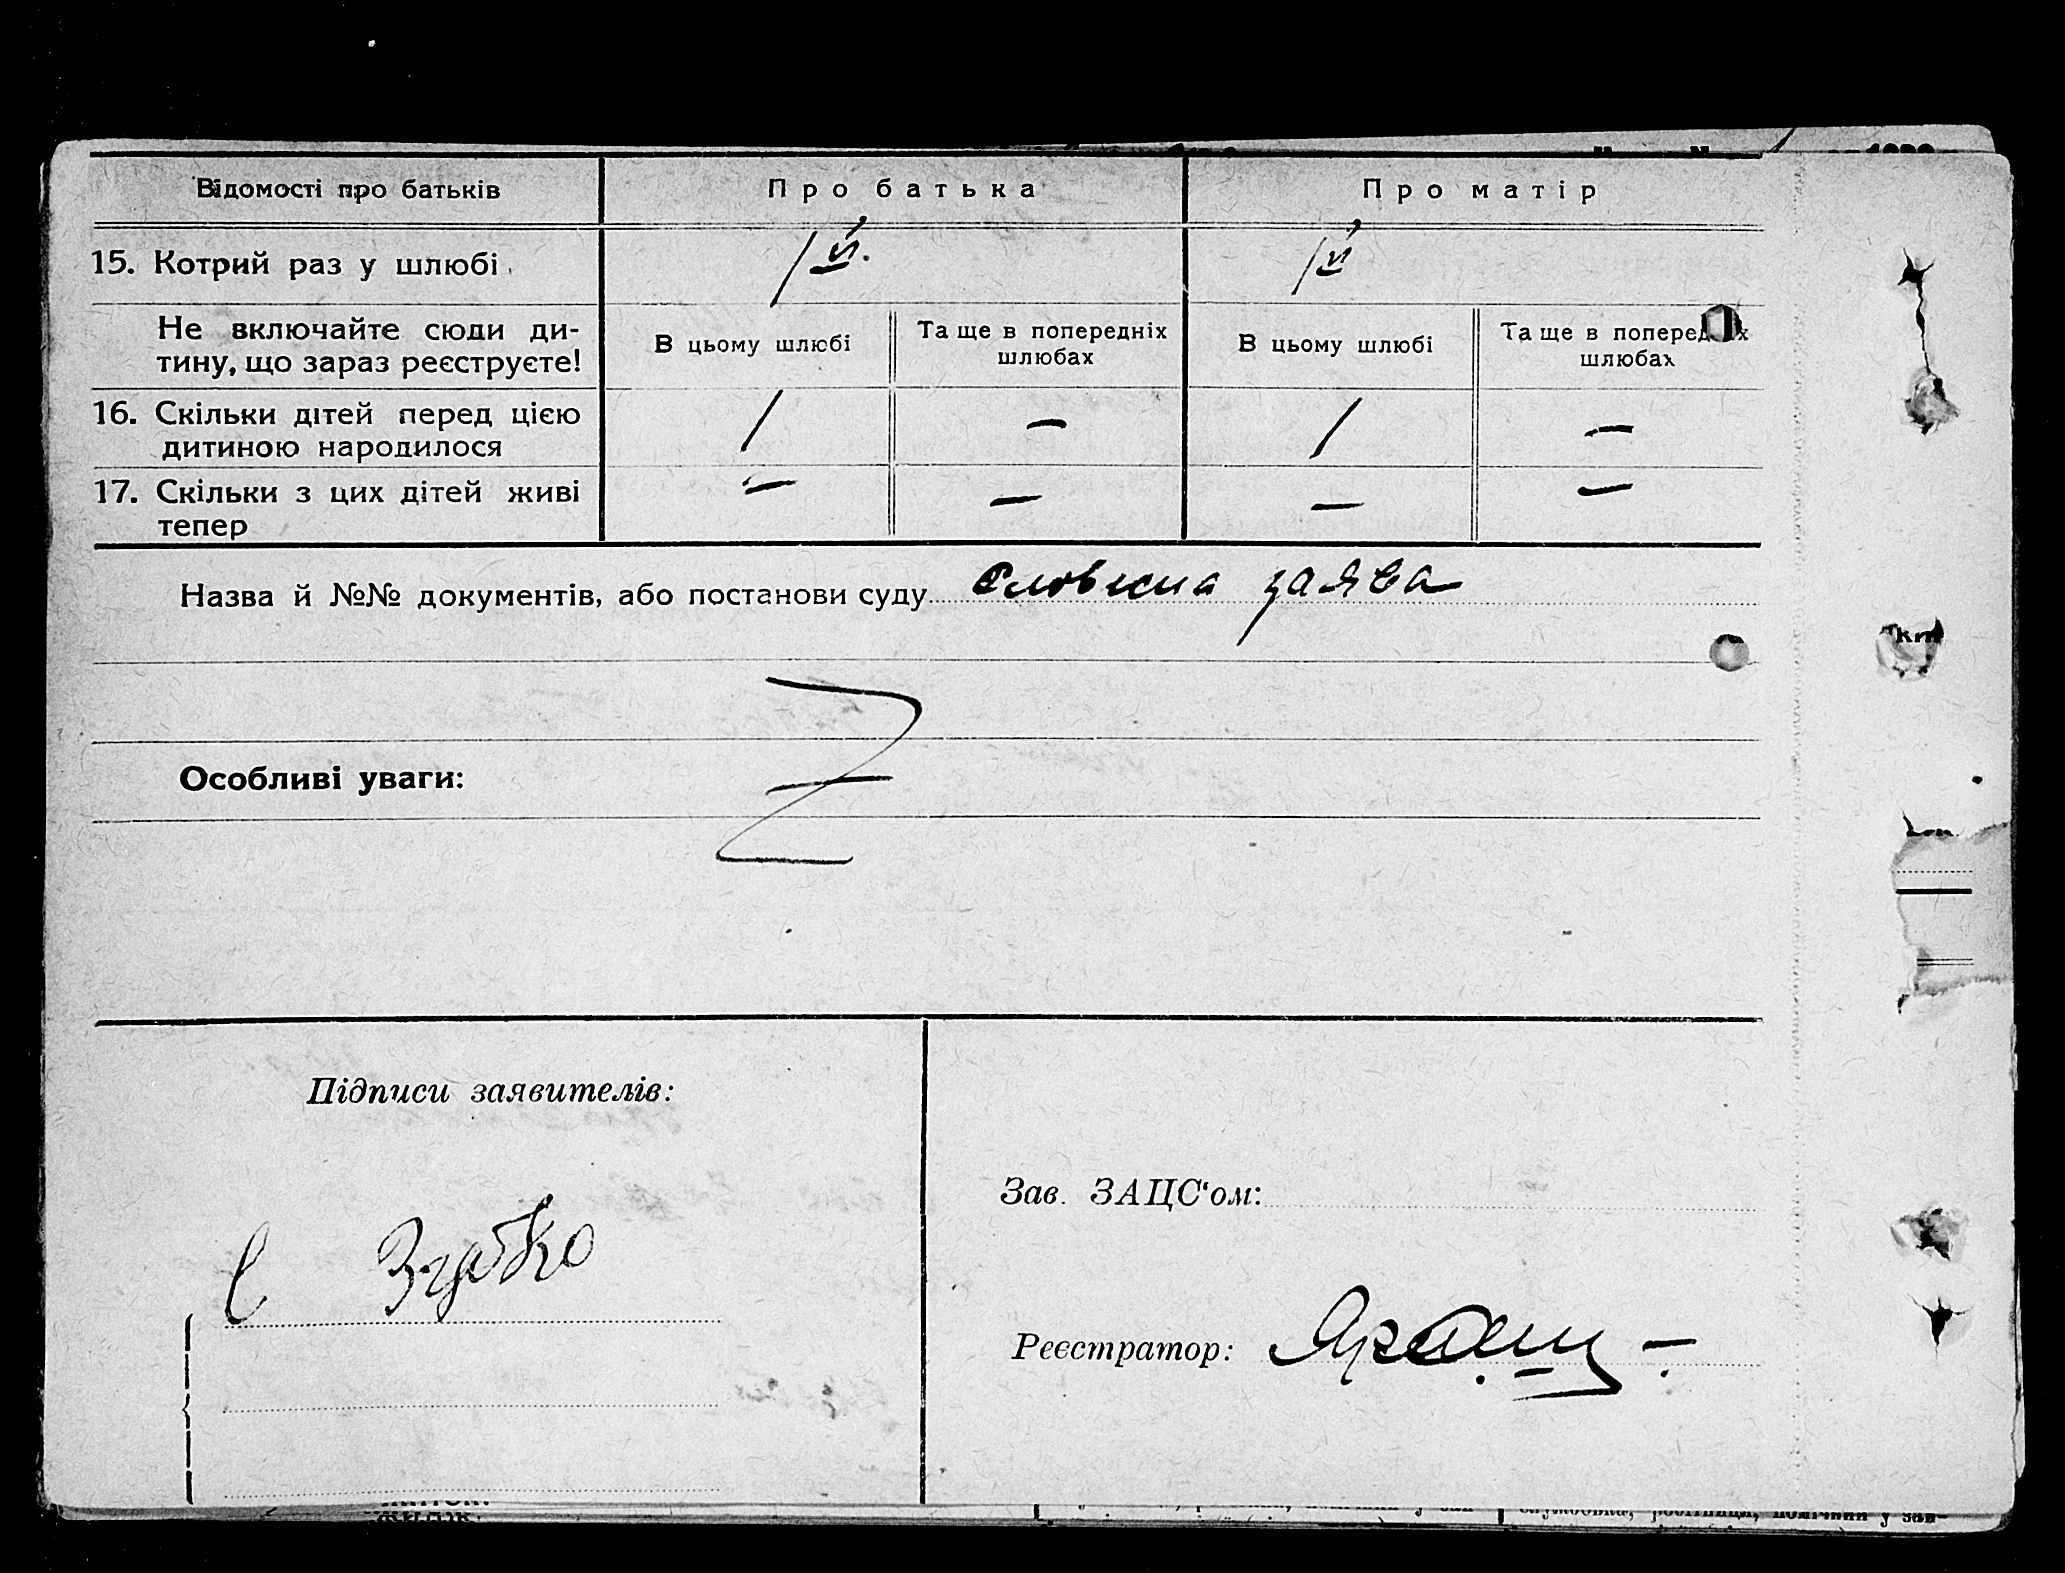 Відомості про батьків Про батька Про матір
15. Котрий раз у шлюбі 1й. 1й
Не включайте сюди ди-
тину, що зараз реєструєте!
В цьому шлюбі
Та ще в попередніх
шлюбах
В цьому шлюбі
Та ще в попередніх
шлюбах
16. Скільки дітей перед цією
дитиною народилося
1 — 1 —
17. Скільки з цих дітей живі
тепер
— — — —
Назва й №№ документів, або постанови суду словесна заява
Особливі уваги:
Підписи заявителів:
Зав. ЗАЦС'ом:
Реєстратор: